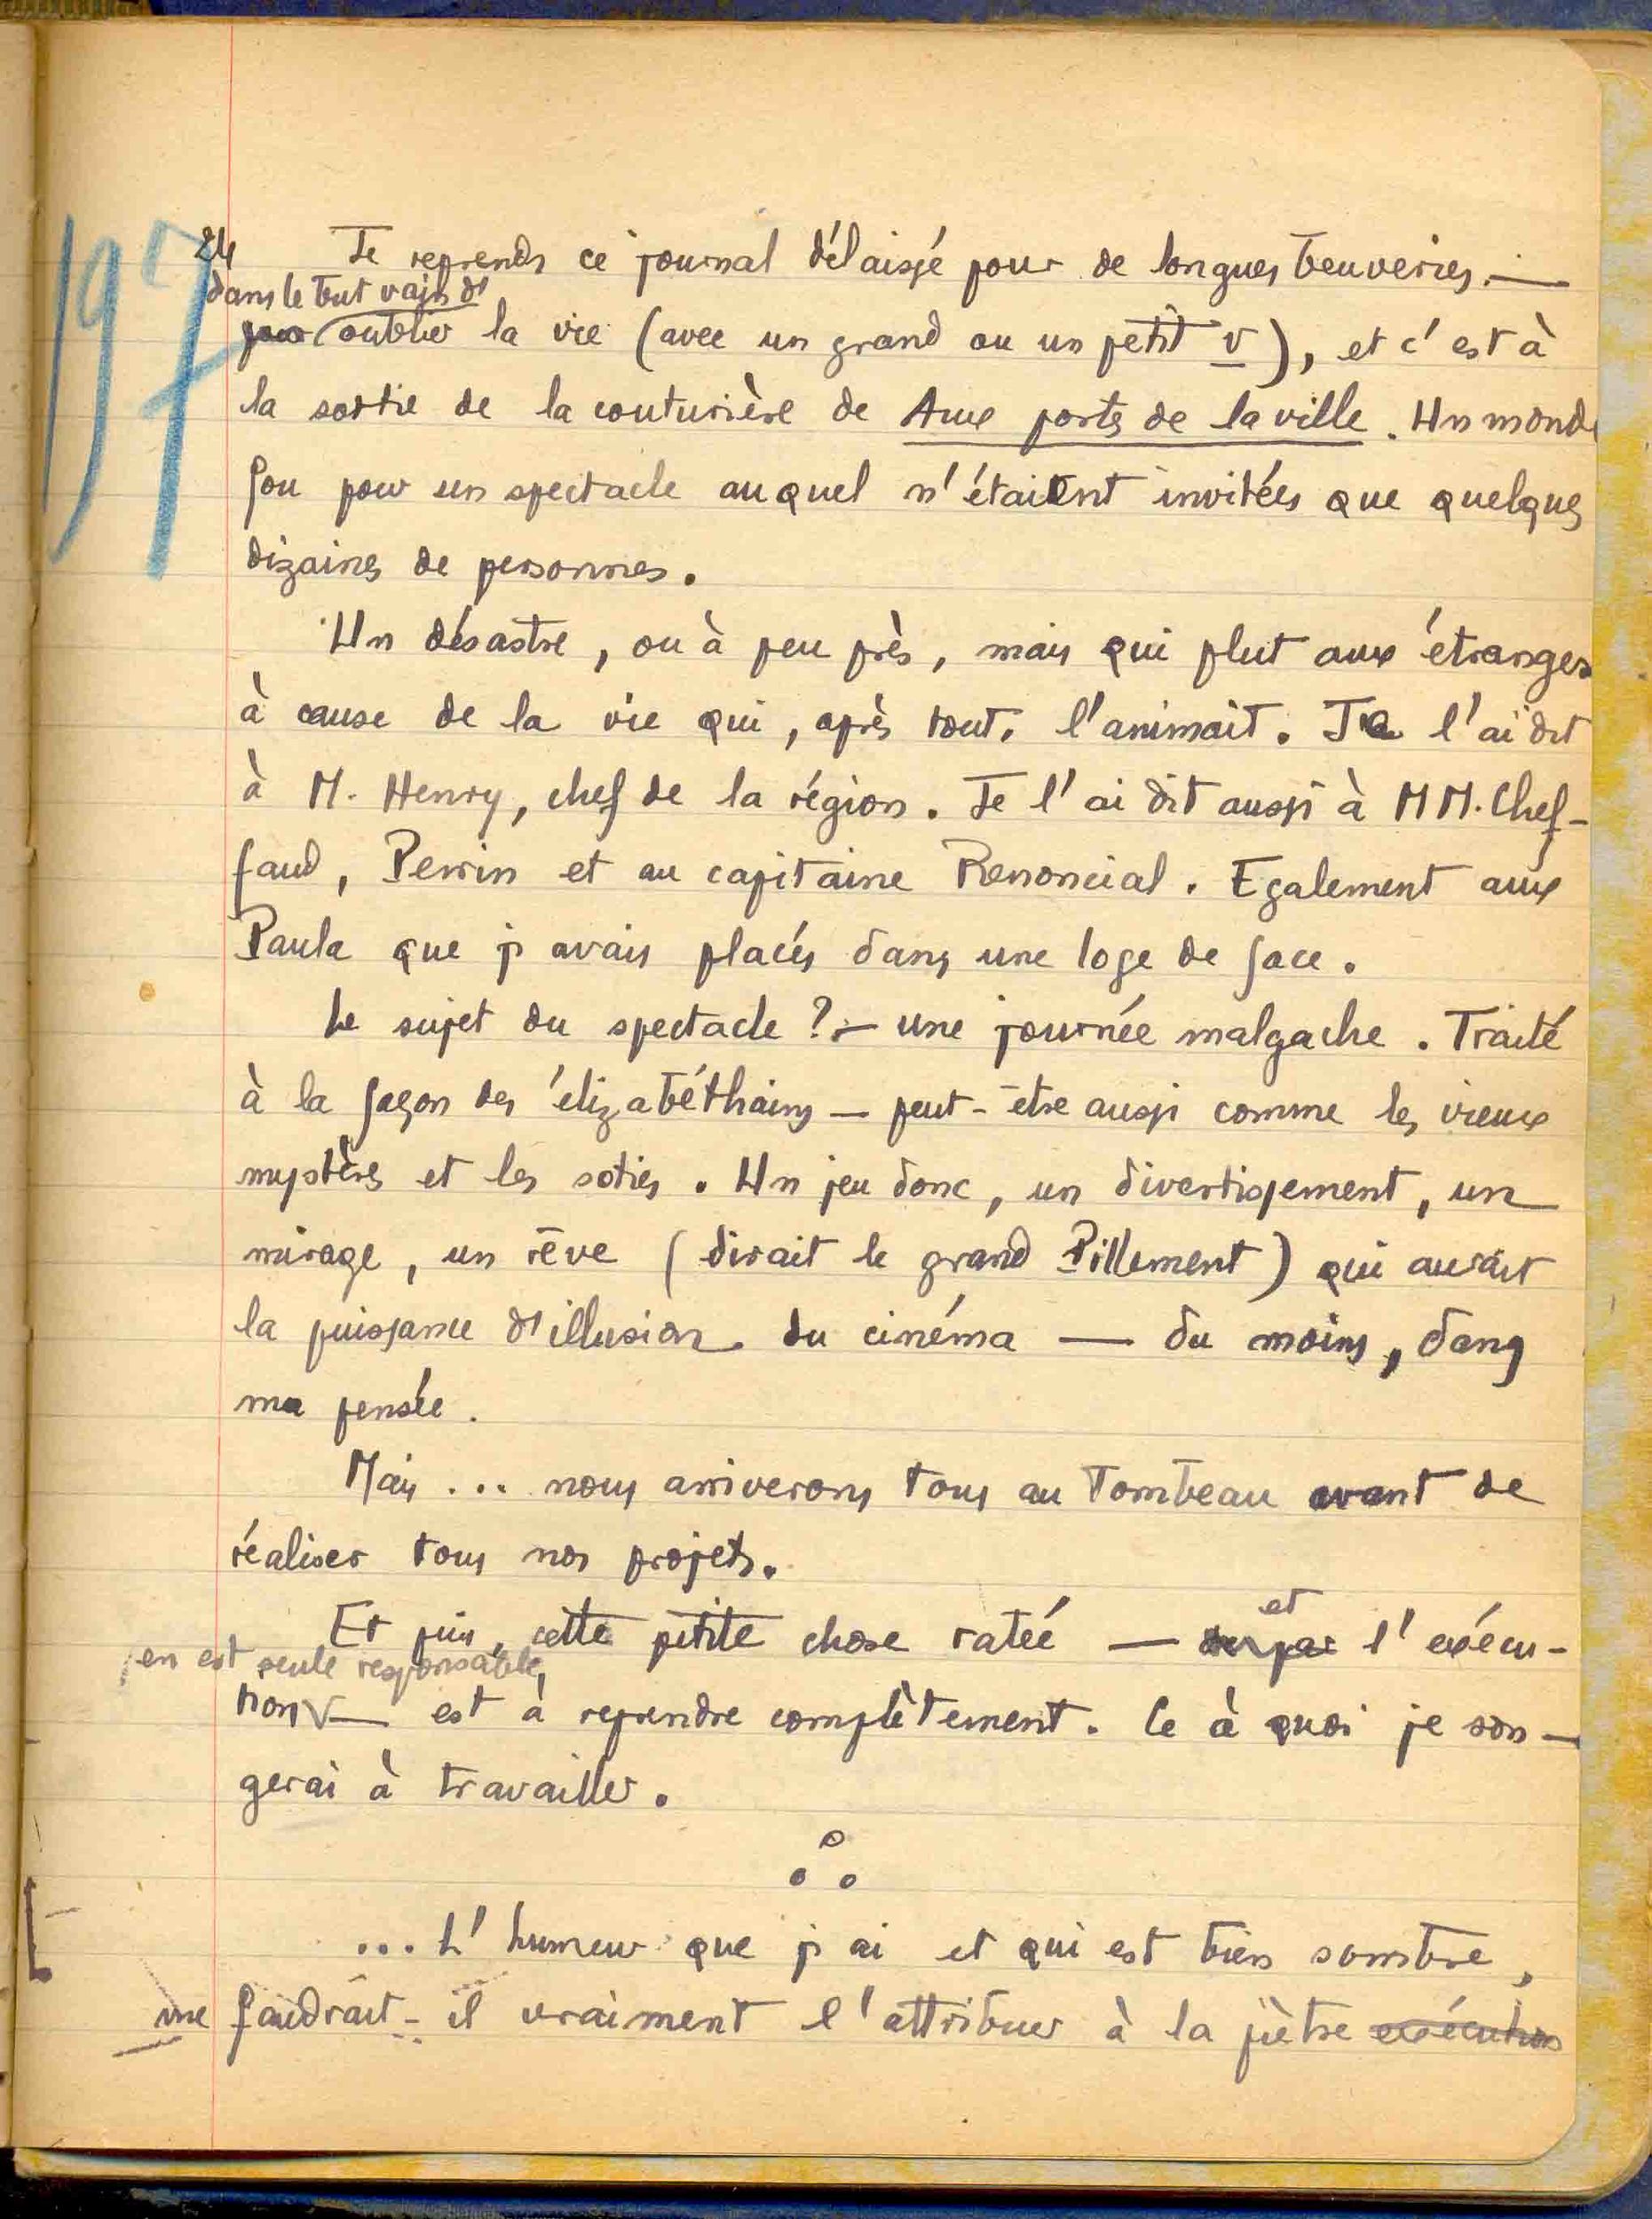 197
24 Je reprends ce journal délaissé pour de longues beuveries —
dans le but vain d'
pour oublier la vie (avec un grand ou un petit v), et c'est à
la sortie de la couturière de Aux portes de la ville. Un monde
fou pour un spectacle auquel n'étaient invitées que quelques
dizaines de personnes.
Un désastre, ou à peu près, mais qui plut aux étrangers
à cause de la vie qui, après tout, l'animait. Je l'ai dit
à M. Henry, chef de la région. Je l'ai dit aussi à MM. Chef-
faud, Perrin et au capitaine Renoncial. Egalement aux
Paula que j'avais placés dans une loge de face.
Le sujet du spectacle ? — une journée malgache. Traité
à la façon des élizabéthains — peut-être aussi comme les vieux
mystères et les soties. Un jeu donc, un divertissement, un
mirage, un rêve (dirait le grand Pillement) qui aurait
la puissance d'illusion du cinéma — du moins, dans
ma pensée.
Mais ... nous arriverons tous au tombeau avant de
réaliser tous nos projets.
et
Et puis, cette petite chose ratée — par l'exécu-
en est seule responsable,
tion — est à reprendre complètement. Ce à quoi je son-
gerai à travailler.
... L'humeur que j'ai et qui est bien sombre,
me faudrait-il vraiment l'attribuer à la piètre exécution